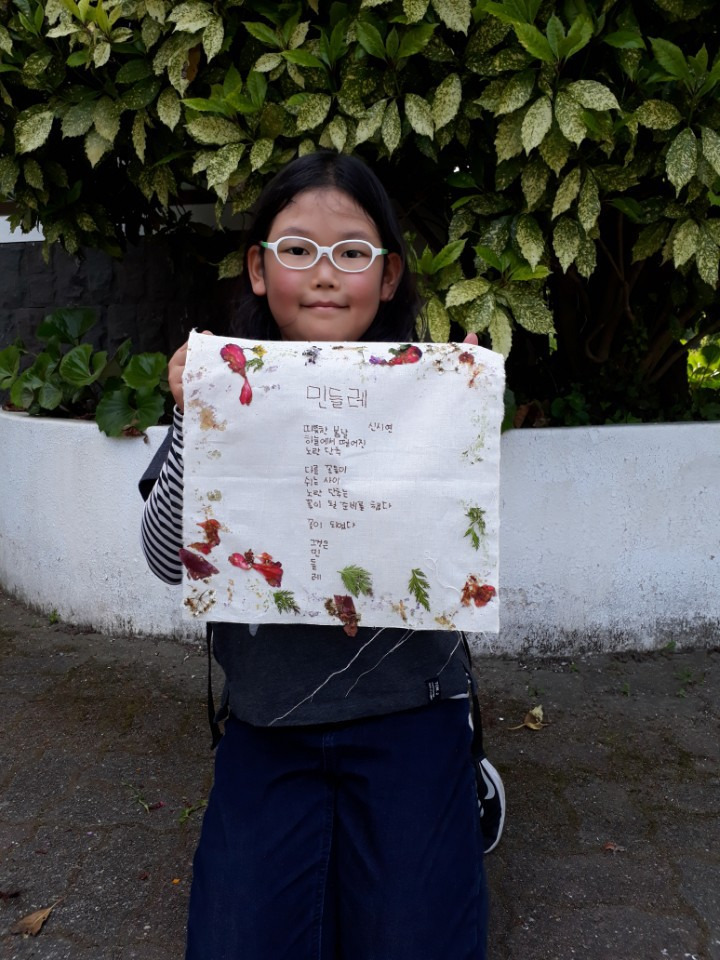 민들레
따뜻한 봄날 신시연
하늘에서 떨어진
노란 단추
다른 꽃들이
쉬는 사이
노란 단추는
꽃이 될 준비를 했다
꽃이 되었다
그것은
민
들
레